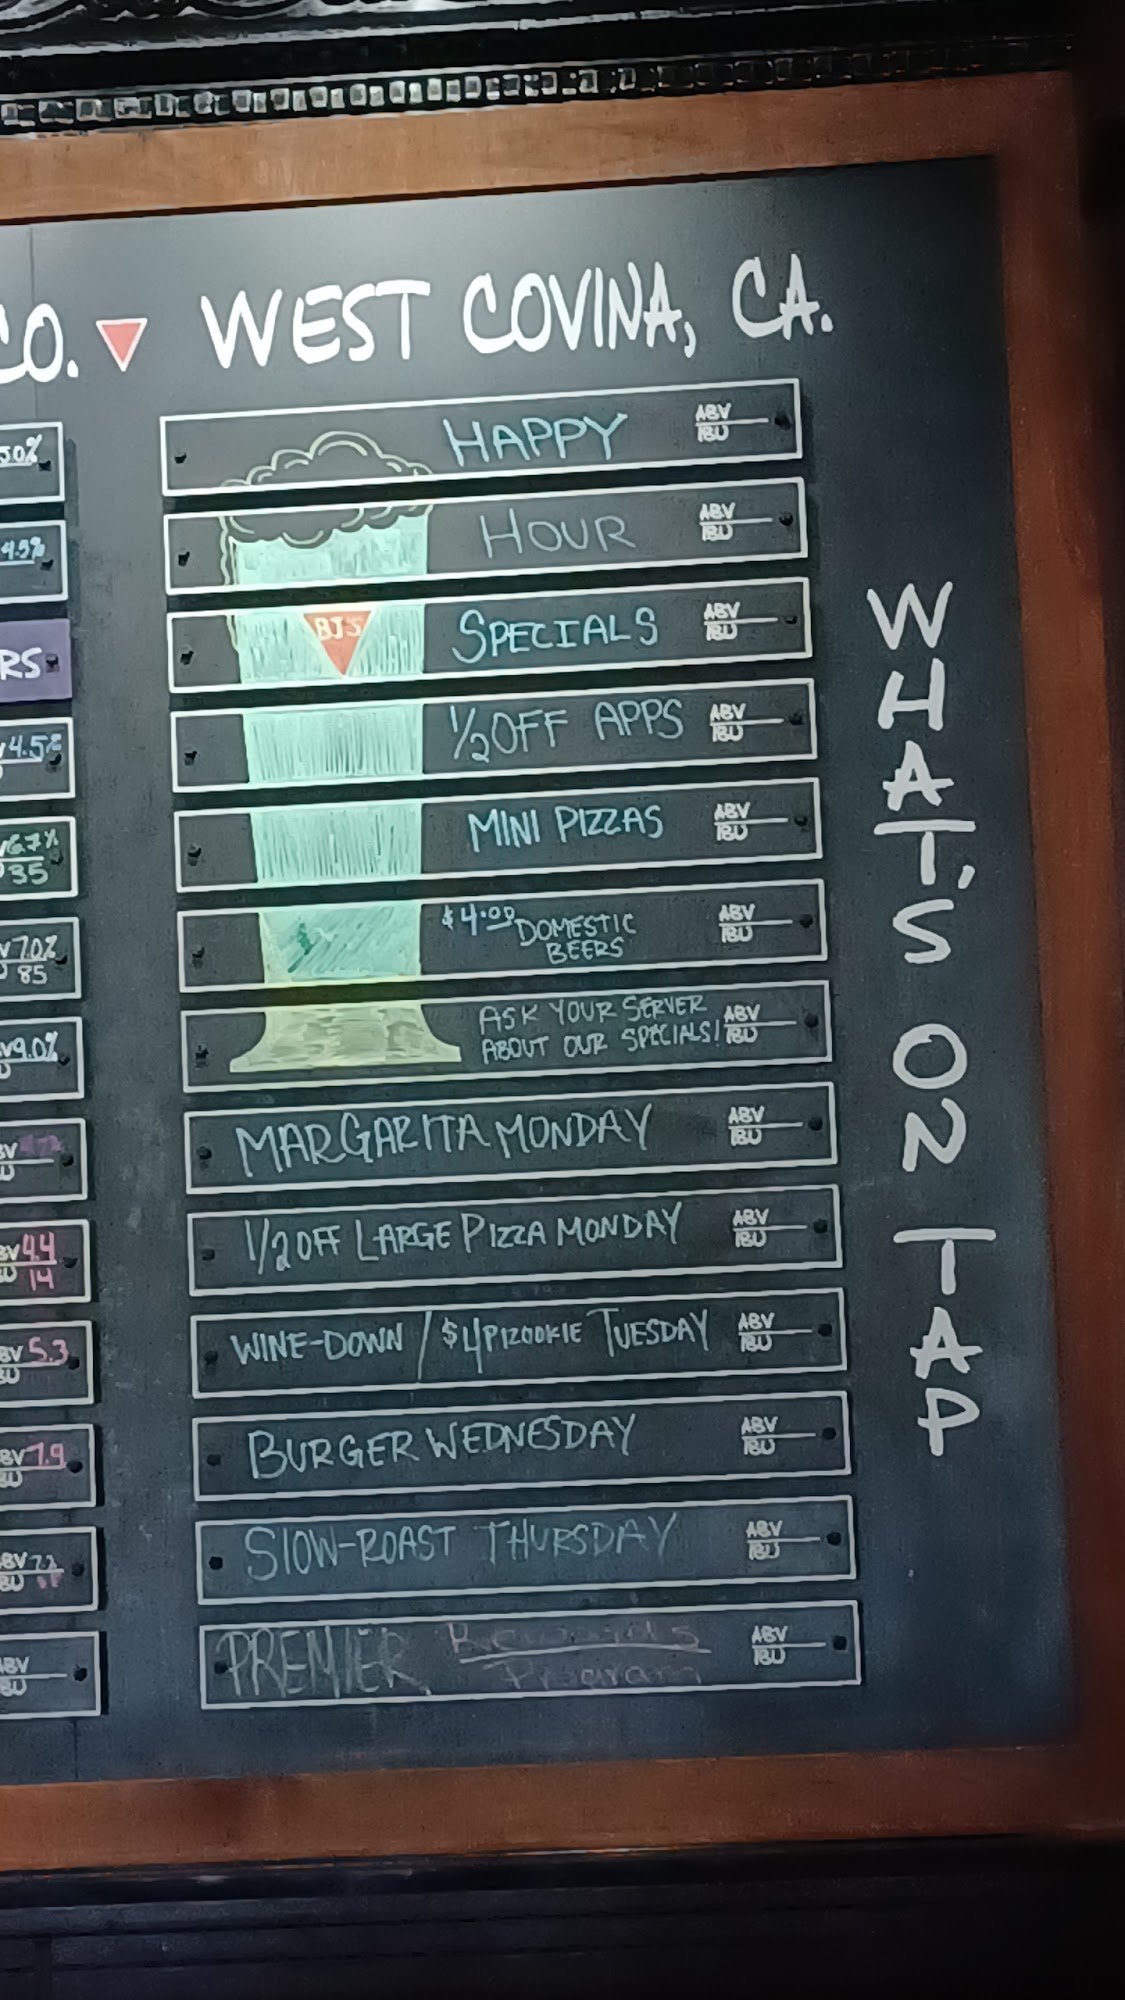 CO. WEST COVINA, CA.
50%
4.5%
RS
4.5%
6.7%
35
7.0%
85
9.0%
4.4
14
5.3
7.9
HAPPY ABV IBU
HOUR ABV IBU
BJ'S SPECIALS ABV IBU
1/2 OFF APPS ABV IBU
MINI PIZZAS ABV IBU
$4.00 DOMESTIC BEERS ABV IBU
ASK YOUR SERVER
ABOUT OUR SPECIALS! ABV IBU
MARGARITA MONDAY ABV IBU
1/2 OFF LARGE PIZZA MONDAY ABV IBU
WINE-DOWN / $4 PIZOOKIE TUESDAY ABV IBU
BURGER WEDNESDAY ABV IBU
SLOW-ROAST THURSDAY ABV IBU
PREMIER Rewards Program ABV IBU
WHAT'S ON TAP